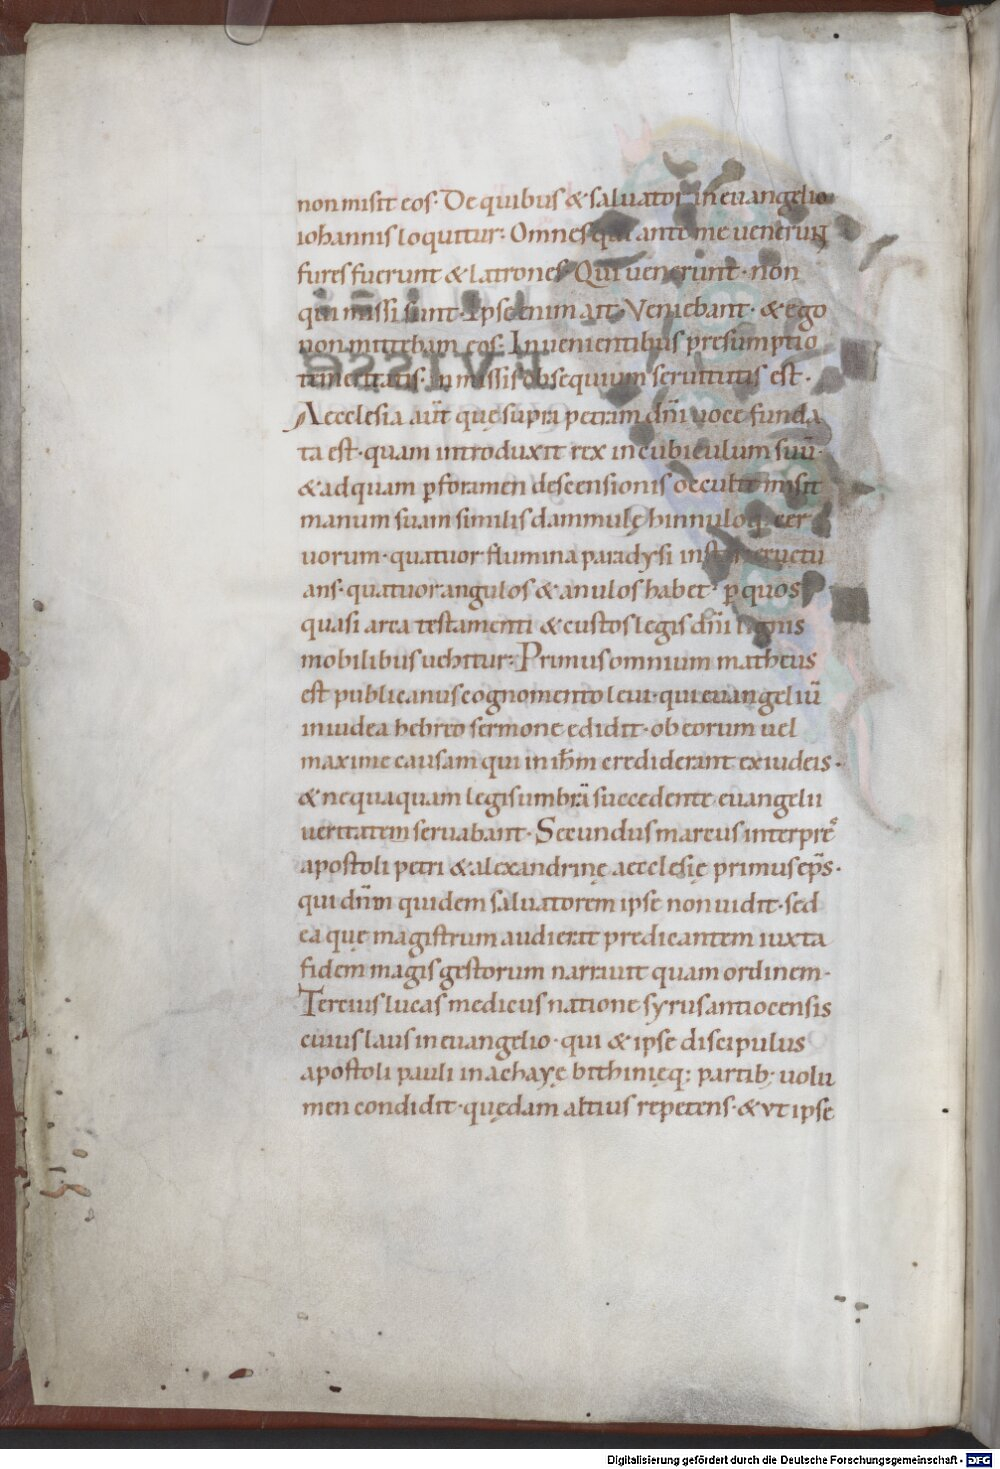 non misit eos· De quibus & saluator in euangelio
iohannis loquitur· Omnes qui ante me uenerunt
fures fuerunt & latrones· Qui uenerunt· non
qui missi sunt· Ipse enim ait· Veniebant· & ego
non mittebam eos· In uenientibus presumptio
temeritatis· in missis obsequium seruitutis est·
Aecclesia aut̄ quę supra petram dn̄i uoce funda
ta est· quam introduxit rex in cubiculum suū·
& ad quam ꝑ foramen descensionis occulte misit
manum suam similis dammulę hinnuloq; cer
uorum· quatuor flumina paradysi instar eructu
ans· quatuor angulos & anulos habet· ꝑ quos
quasi arca testamenti & custos legis dn̄i lignis
mobilibus uehitur· Primus omnium matheus
est publicanus cognomento leui· qui euangeliū
in iudea hebreo sermone edidit· ob eorum uel
maxime causam qui in ih̄m crediderant ex iudeis·
& nequaquam legis umbrā succedente euangelii
ueritatem seruabant· Secundus marcus interpre
apostoli petri & alexandrinę aecclesię primus ep̄s·
qui dn̄m quidem saluatorem ipse non uidit· sed
ea quę magistrum audierat predicantem iuxta
fidem magis gestorum narrauit quam ordinem·
Tercius lucas medicus natione syrus antiocensis
cuius laus in euangelio· qui & ipse discipulus
apostoli pauli in achayę bithinięq; partib; uolu
men condidit· quędam altius repetens· & ut ipse
Digitalisierung gefördert durch die Deutsche Forschungsgemeinschaft - DFG